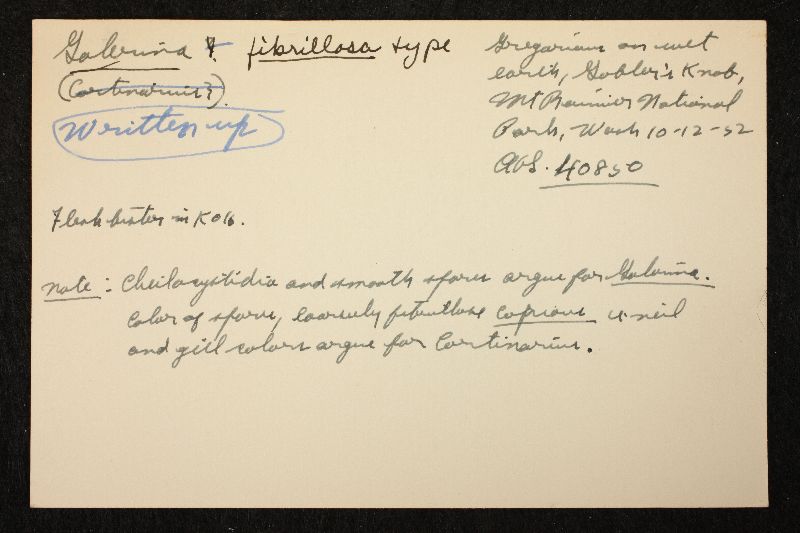 Galerina ? fibrillosa type
(Cortinarius?)
Written up
Gregarious on wet
earth, Gobler's Knob,
Mt Rainier National
Park, Wash 10-12-52
AHS. 40850
Flesh bister in KOH.
note: Cheilocystidia and smooth spores argue for Galerina.
Color of spores, coarsely copious veil
and gill colors argue for Cortinarius.